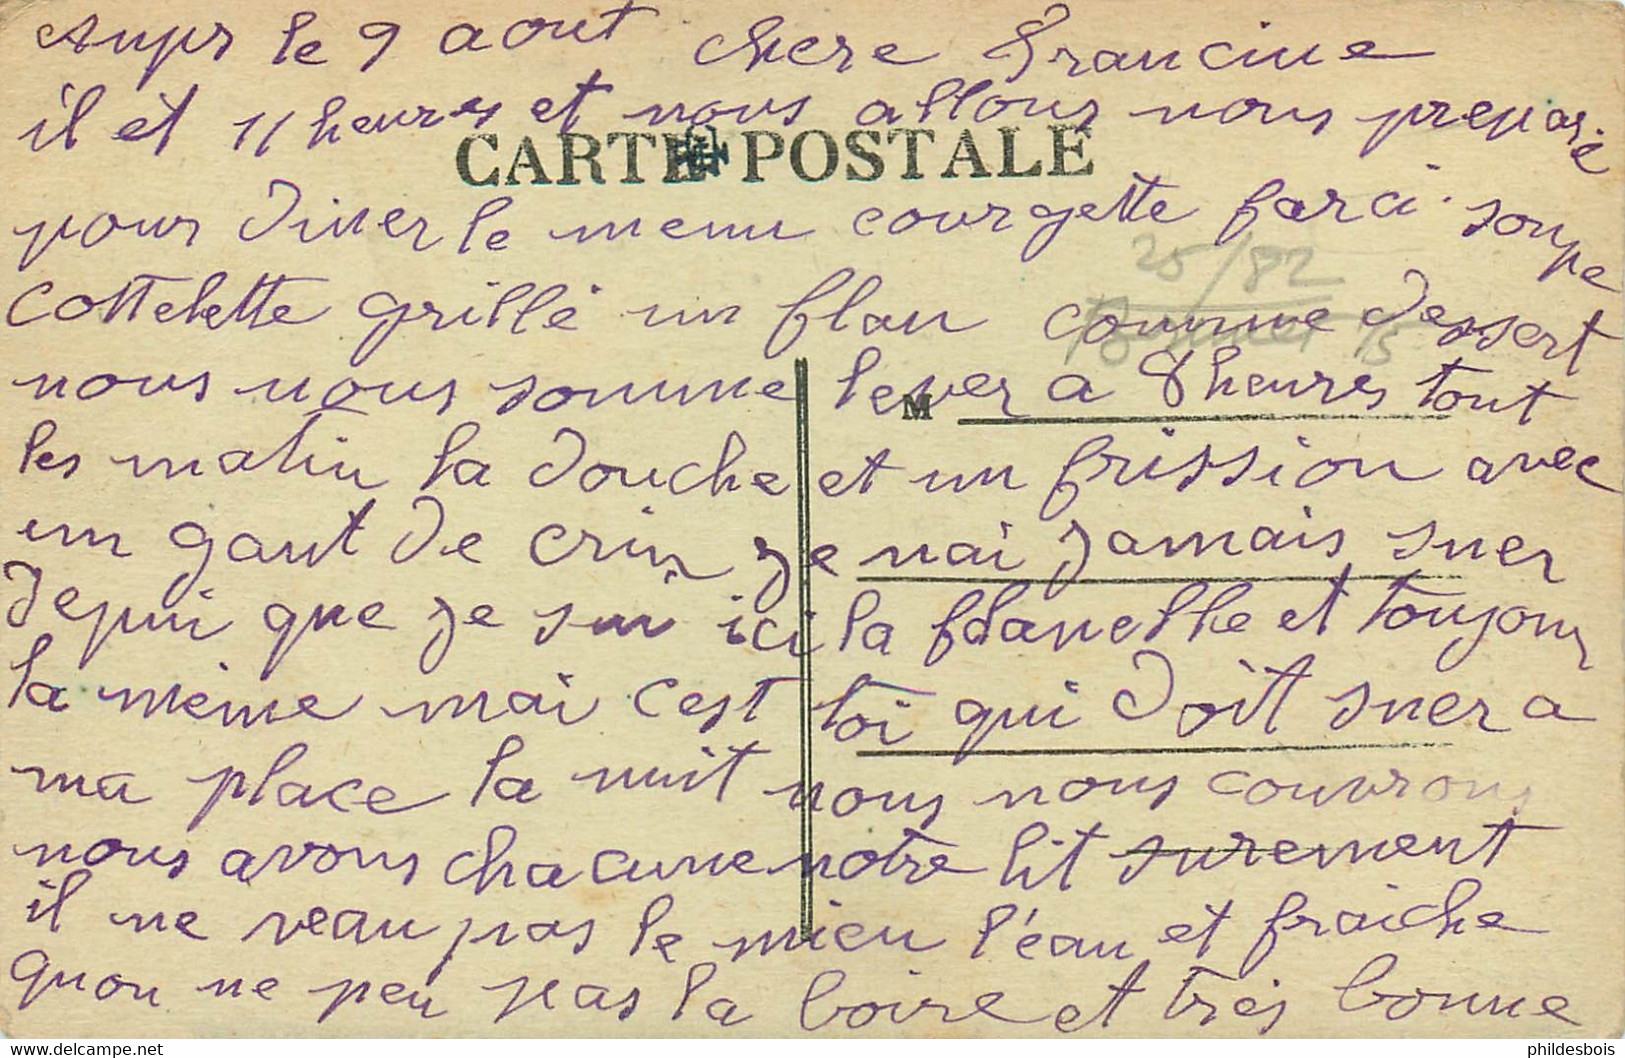 Aups le 9 aout chere Francine
il et 11 heures et nous allons nous preparé
CARTE POSTALE
pour diner le menu courgette farci. soupe
25/82
cottelette grillé un flan comme dessert
15
nous nous somme lever a 8 heures tout
M
les matin la douche et un frission avec
un gant de crin je nai jamais suer
depui que je sui ici la flanelle et toujour
la mème mai c'est toi qui doit suer a
ma place la nuit nous nous couvrons
nous avons chacune notre lit surement
il ne veau pas le mien l'éau et fraiche
quon ne peu pas la boire et très bonne
phildesbois